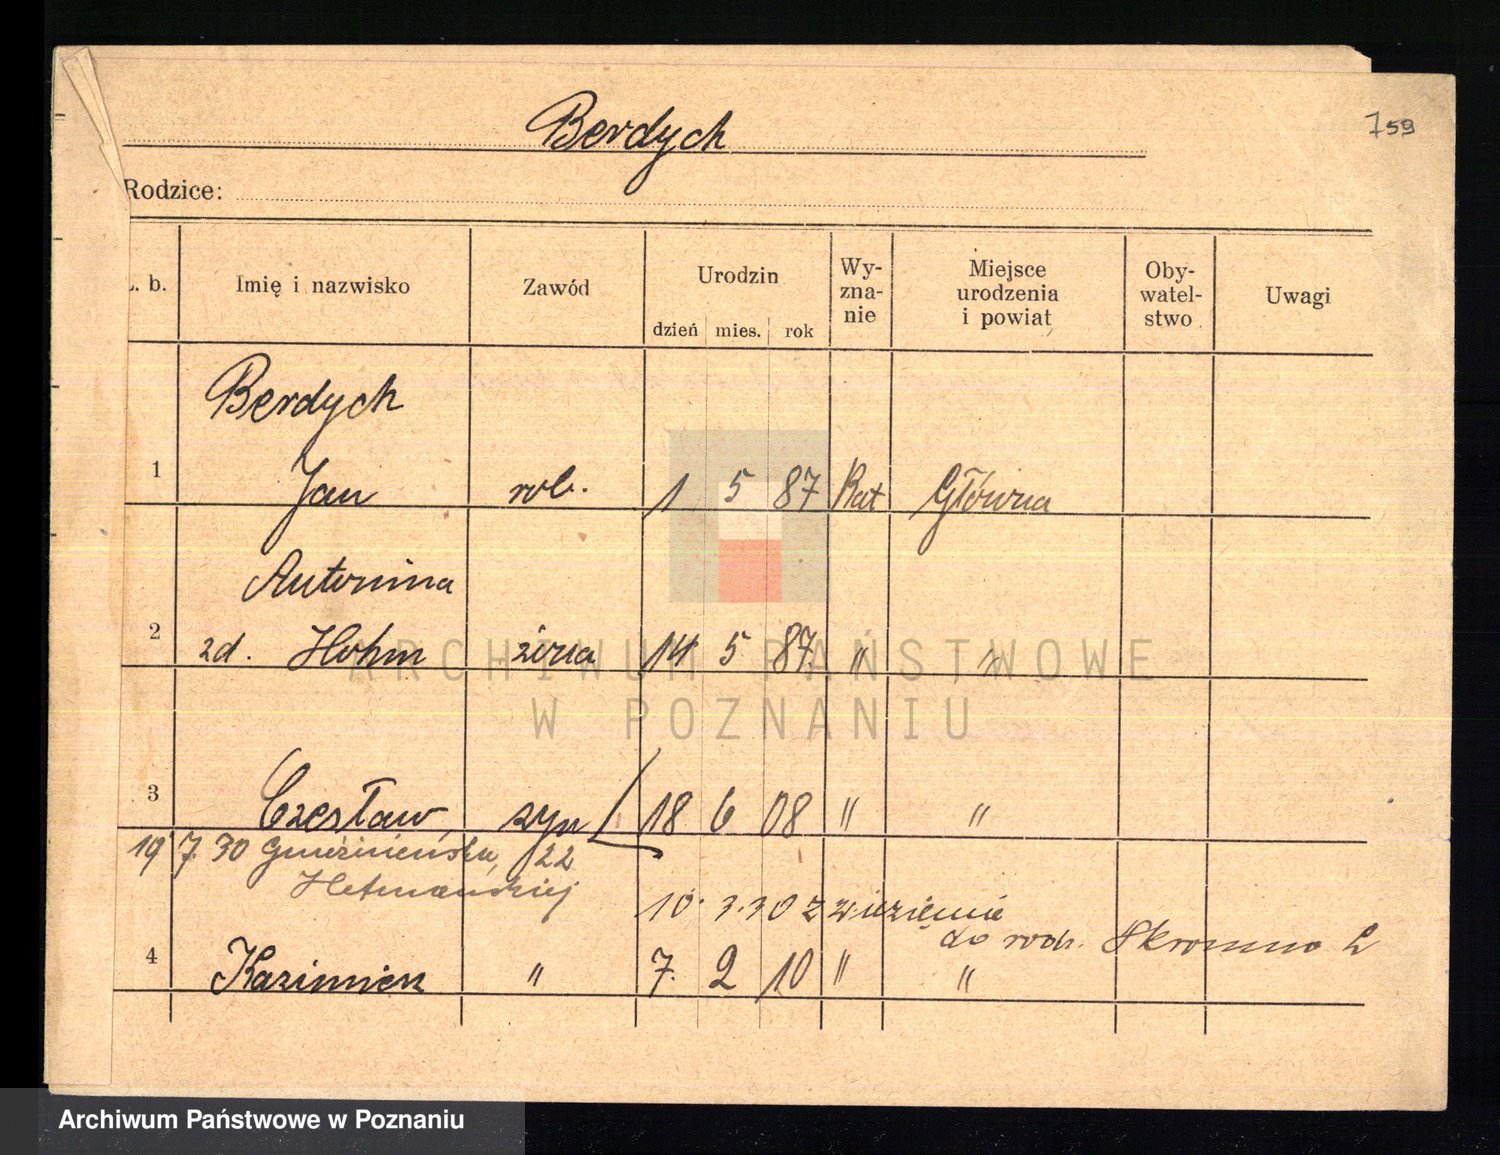 Berdych
759
Rodzice:
L. b.
Imię i nazwisko
Zawód
Urodzin
dzień mies. rok
Wy-
zna-
nie
Miejsce
urodzenia
i powiat
Oby-
watel-
stwo
Uwagi
Berdych
1 Jan rob. 1 5 87 Kat Główna
Antonina
2 zd. Hohm żona 14 5 87. " "
3 Czesław syn 18 6 08 " "
19 7. 30 22
Hetmańskiej
10. 3. 30 z
do rodz. Skromna 2
4 Kazimierz " 7. 2 10 " "
ARCHIWUM PAŃSTWOWE
W POZNANIU
Archiwum Państwowe w Poznaniu